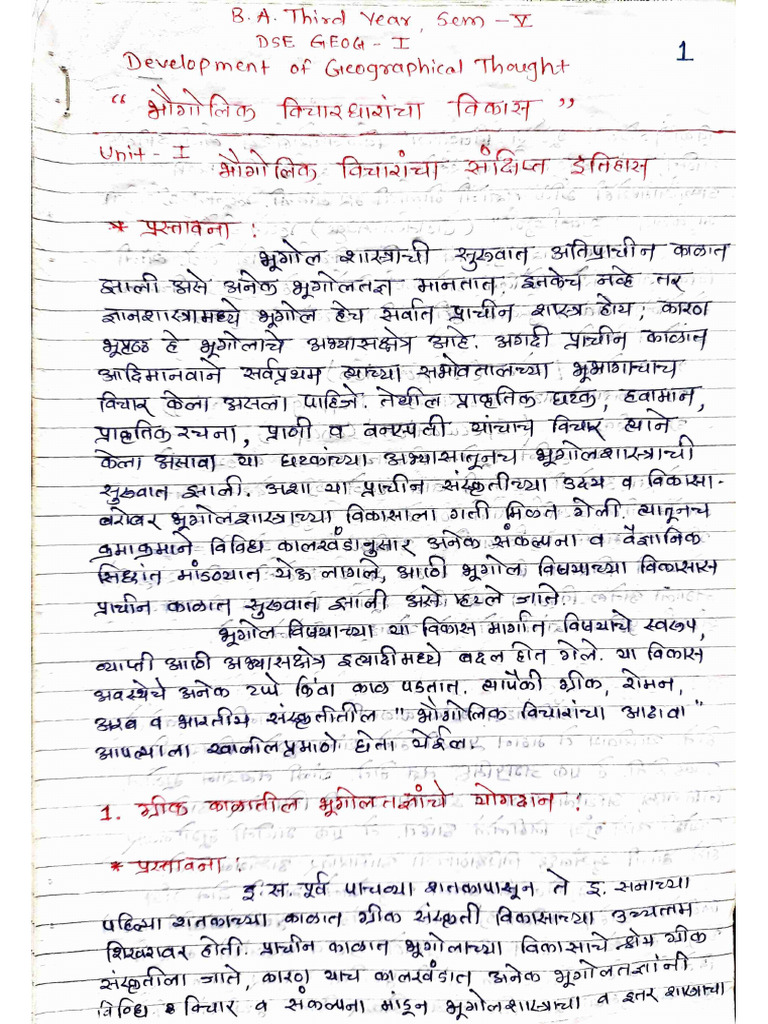 B.A. Third Year, Sem - V
DSE GEOG - I
1
Development of Geographical Thought
" भौगोलिक विचारधारांचा विकास "
Unit - I भौगोलिक विचारांचा संक्षिप्त इतिहास
* प्रस्तावना :
भूगोल शास्त्राची सुरुवात अतिप्राचीन काळात
झाली असे अनेक भूगोलतज्ञ मानतात. इतकेच नव्हे तर
ज्ञानशास्त्रामध्ये भूगोल हेच सर्वात प्राचीन शास्त्र होय, कारण
भूपृष्ठ हे भूगोलाचे अभ्यासक्षेत्र आहे. अगदी प्राचीन काळात
आदिमानवाने सर्वप्रथम त्याच्या सभोवतालच्या भूभागाचाच
विचार केला असला पाहिजे. तेथील प्राकृतिक घटक, हवामान,
प्राकृतिक रचना, प्राणी व वनस्पती यांचाच विचार त्याने
केला असावा या घटकांच्या अभ्यासातूनच भूगोलशास्त्राची
सुरुवात झाली. अशा या प्राचीन संस्कृतीच्या उदय व विकासा-
बरोबर भूगोलशास्त्राच्या विकासाला गती मिळत गेली. त्यातूनच
क्रमाक्रमाने विविध कालखंडानुसार अनेक संकल्पना व वैज्ञानिक
सिद्धांत मांडण्यात येऊ लागले, आणि भूगोल विषयाच्या विकासास
प्राचीन काळात सुरुवात झाली असे म्हटले जाते.
भूगोल विषयाच्या या विकास मार्गात विषयाचे स्वरूप,
व्याप्ती आणि अभ्यासक्षेत्र इत्यादींमध्ये बदल होत गेले. या विकास
अवस्थेचे अनेक टप्पे किंवा काळ पडतात. त्यापैकी ग्रीक, रोमन,
अरब व भारतीय संस्कृतीतील " भौगोलिक विचारांचा आढावा "
आपल्याला खालीलप्रमाणे घेता येईल.
1. ग्रीक काळातील भूगोलतज्ञांचे योगदान :
* प्रस्तावना :
इ.स. पूर्व पाचव्या शतकापासून ते इ. सनाच्या
पहिल्या शतकाच्या काळात ग्रीक संस्कृती विकासाच्या उच्चतम
शिखरावर होती. प्राचीन काळात भूगोलाच्या विकासाचे श्रेय ग्रीक
संस्कृतीला जाते, कारण याच कालखंडात अनेक भूगोलतज्ञांनी
विविध विचार व संकल्पना मांडून भूगोलशास्त्राचा व इतर शास्त्राचा